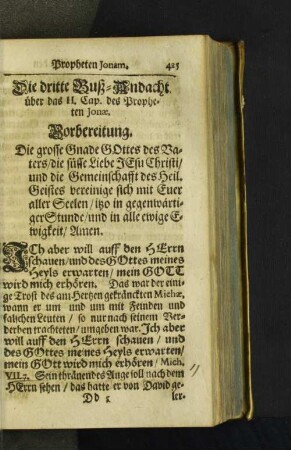 Propheten Jonam. 425
Die dritte Buß-Andacht
über das II. Cap. des Prophe-
ten Jonæ.
Vorbereitung.
Die grosse Gnade GOttes des Va-
ters/die süsse Liebe JEsu Christi/
und die Gemeinschafft des Heil.
Geistes vereinige sich mit Euer
aller Seelen/ itzo in gegenwärti-
ger Stunde/und in alle ewige E-
wigkeit/ Amen.
ICh aber will auff den HErrn
schauen/und des GOttes meines
Heyls erwarten/ mein GOTT
wird mich erhören. Das war der eini-
ge Trost des am Hertzen gekränckten Michæ,
wann er um und um mit Feinden und
falschen Leuten / so nur nach seinem Ver-
derben trachteten/ umgeben war. Ich aber
will auff den HErrn schauen / und
des GOttes meines Heyls erwarten/
mein GOtt wird mich erhören / Mich.
VII,7. Sein thränendes Auge soll nach dem
HErrn sehen / das hatte er von David ge-
Dd 5 ler-